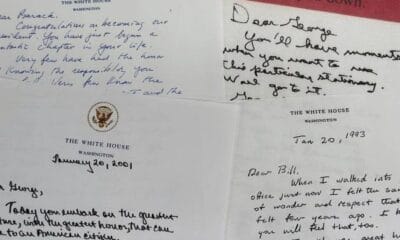 DOWN.
THE WHITE HOUSE
WASHINGTON
Dear Barack,
Congratulations on becoming our
President. You have just begun a
fantastic chapter in your life.
Very few have had the honor
of knowing the responsibility you
Very few know the
THE WHITE HOUSE
WASHINGTON
January 20, 2001
George,
Today you embark on the greatest
with the greatest honor, that can
to an American citizen.
Dear George,
You'll have moments
when you want to use
this particular stationery.
Well go to it.
THE WHITE HOUSE
WASHINGTON
Jan 20, 1993
Dear Bill,
When I walked into
office just now I felt the
of wonder and respect that
felt four years ago. I
you will feel that, too.
great